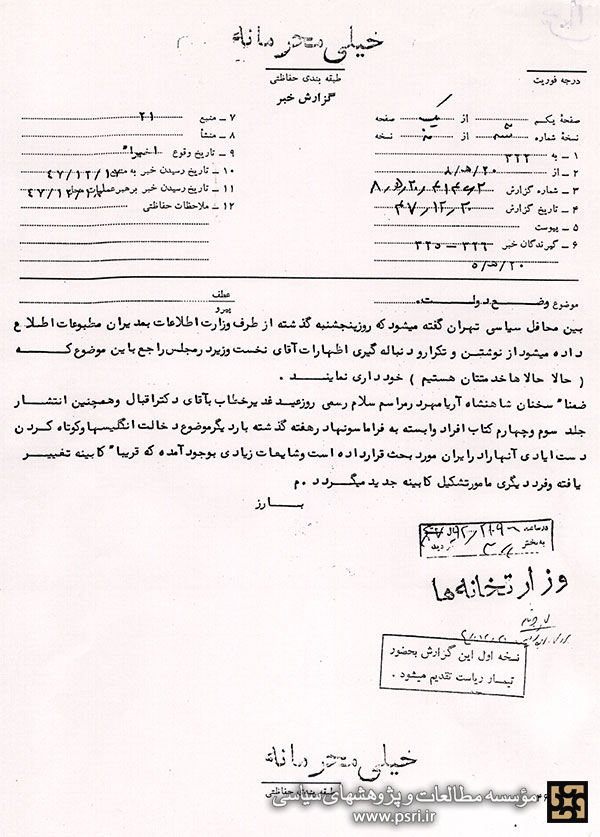 خیلی محرمانه
طبقه بندی حفاظتی
درجه فوریت
گزارش خبر
صفحهٔ یکم از یک صفحه
نسخهٔ شماره از نسخه
۱ – به ۳۲۲
۲ – از ۲۰/ه‍/۸
۳ – شماره گزارش
۴ – تاریخ گزارش ۴۷/۱۲/۲۰
۵ – پیوست
۶ – گیرندگان خبر ۳۲۶ – ۳۲۵
۲۰/ه‍/۵
۷ – منبع ۲۱
۸ – منشأ
۹ – تاریخ وقوع اخیراً
۱۰ – تاریخ رسیدن خبر به منبع
۱۱ – تاریخ رسیدن خبر برهبر عملیات
۱۲ – ملاحظات حفاظتی
موضوع وضع دولت.
عطف
پیرو
بین محافل سیاسی تهران گفته میشود که روزپنجشنبه گذشته از طرف وزارت اطلاعات بمدیران مطبوعات اطلاع
داده میشود از نوشتن و تکرار و دنباله گیری اظهارات آقای نخست وزیر در مجلس راجع باین موضوع که
( حالا حالا ها خدمتتان هستیم ) خود داری نمایند .
ضمنا" سخنان شاهنشاه آریامهر در مراسم سلام رسمی روز عید غدیر خطاب بآقای دکتر اقبال و همچنین انتشار
جلد سوم و چهارم کتاب افراد وابسته به فراماسونها در هفته گذشته بار دیگر موضوع دخالت انگلیسها و کوتاه کردن
دست ایادی آنها را در ایران مورد بحث قرار داده است و شایعات زیادی بوجود آمده که قریبا" کابینه تغییر
یافته و فرد دیگری مامور تشکیل کابینه جدید میگردد . م
بارز
در ساعت
به بخش
وزارتخانه ها
نسخه اول این گزارش بحضور
تیمسار ریاست تقدیم میشود .
خیلی محرمانه
طبقه بندی حفاظتی
مؤسسه مطالعات و پژوهشهای سیاسی
www.psri.ir